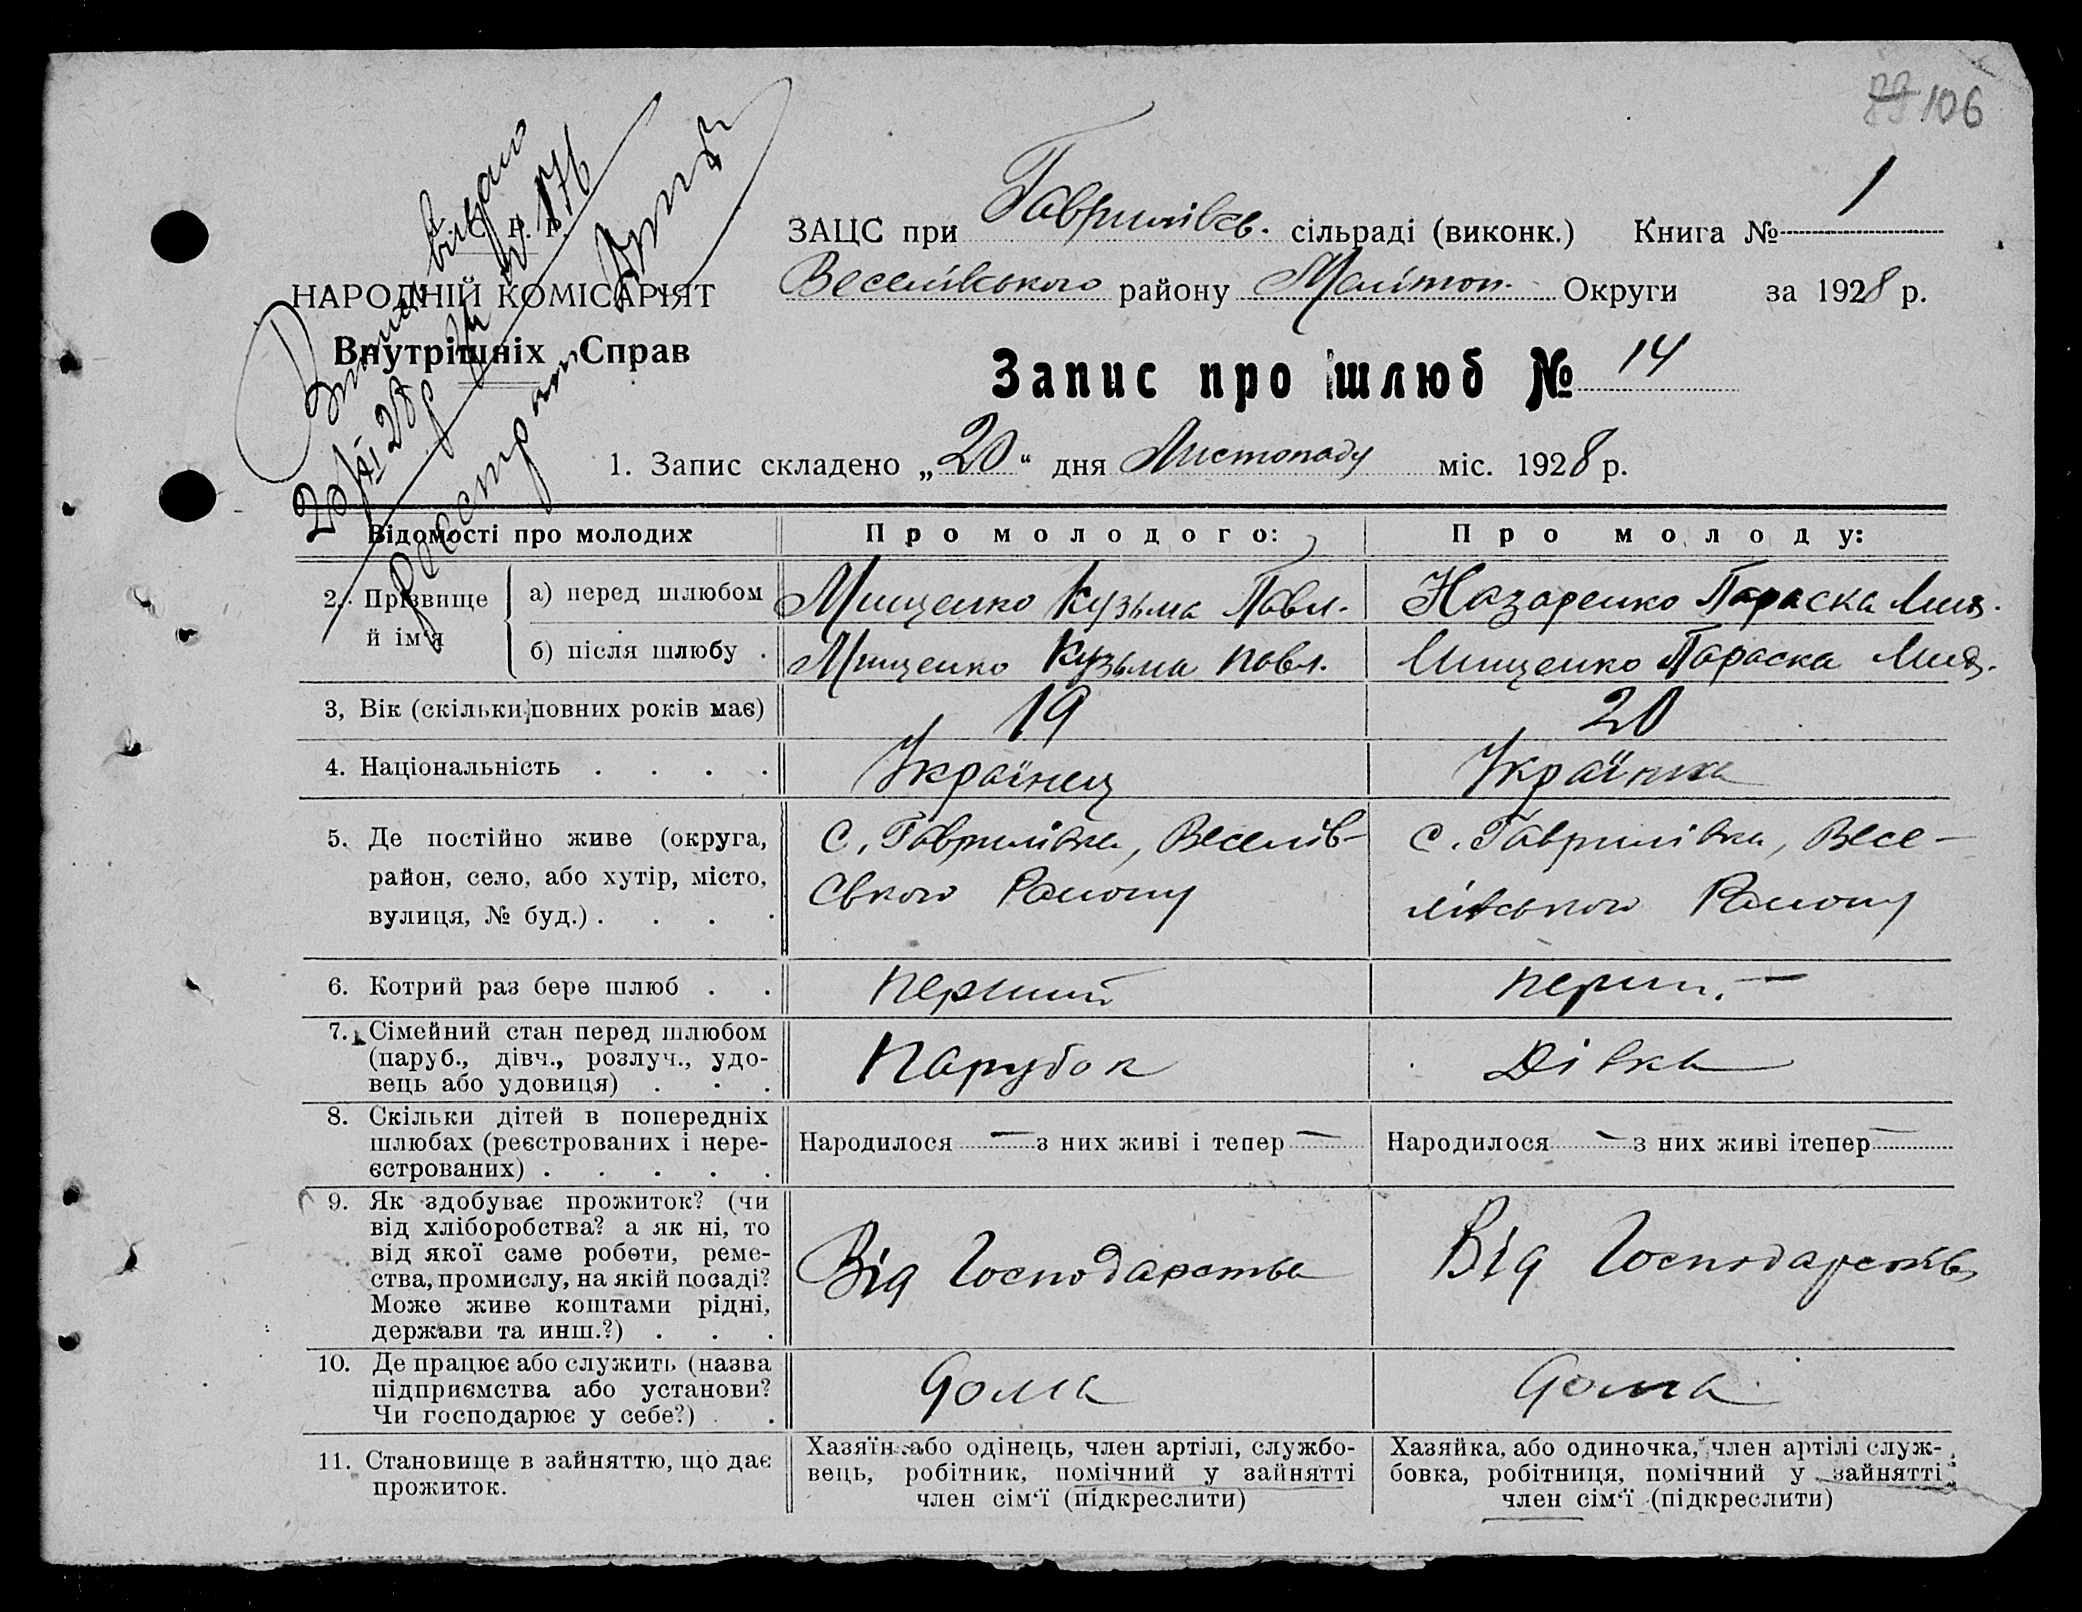 99 106
Виписку видано
20/XI 28 р. № 176
У. С. Р. Р.
НАРОДНІЙ КОМІСАРІЯТ
Внутрішніх Справ
ЗАЦС при Гаврилівск. сільраді (виконк.) Книга № 1
Веселівського району Мелітоп. Округи за 1928 р.
Запис про шлюб № 14
1. Запис складено „20“ дня Листопаду міс. 1928 р.
Відомості про молодих Про молодого: Про молоду:
2. Прізвище й ім‘я
а) перед шлюбом Мищенко Кузьма Павл. Назаренко Параска Мих.
б) після шлюбу . Мищенко Кузьма Павл. Мищенко Параска Мих.
3, Вік (скільки повних років має) 19 20
4. Національність . . . . Українец Українка
5. Де постійно живе (округа,
район, село, або хутір, місто,
вулиця, № буд.) . . . .
с. Гаврилівка, Веселів-
ського Району
с. Гаврилівка, Весе-
лівського Району
6. Котрий раз бере шлюб . . перший перш. —
7. Сімейний стан перед шлюбом
(паруб., дівч., розлуч., удо-
вець або удовиця) . . .
Парубок Дівка
8. Скільки дітей в попередніх
шлюбах (реєстрованих і нере-
єстрованих) . . . . .
Народилося — з них живі і тепер — Народилося — з них живі ітепер —
9. Як здобуває прожиток? (чи
від хліборобства? а як ні, то
від якої саме роботи, реме-
ства, промислу, на якій посаді?
Може живе коштами рідні,
держави та инш.?) . . .
Від Господарства Від Господарства
10. Де працює або служить (назва
підприємства або установи?
Чи господарює у себе?) . .
Дома Дома
11. Становище в зайняттю, що дає
прожиток.
Хазяїн або одінець, член артілі, службо-
вець, робітник, помічний у зайнятті
член сім‘ї (підкреслити)
Хазяйка, або одиночка, член артілі служ-
бовка, робітниця, помічний у зайнятті
член сім‘ї (підкреслити)